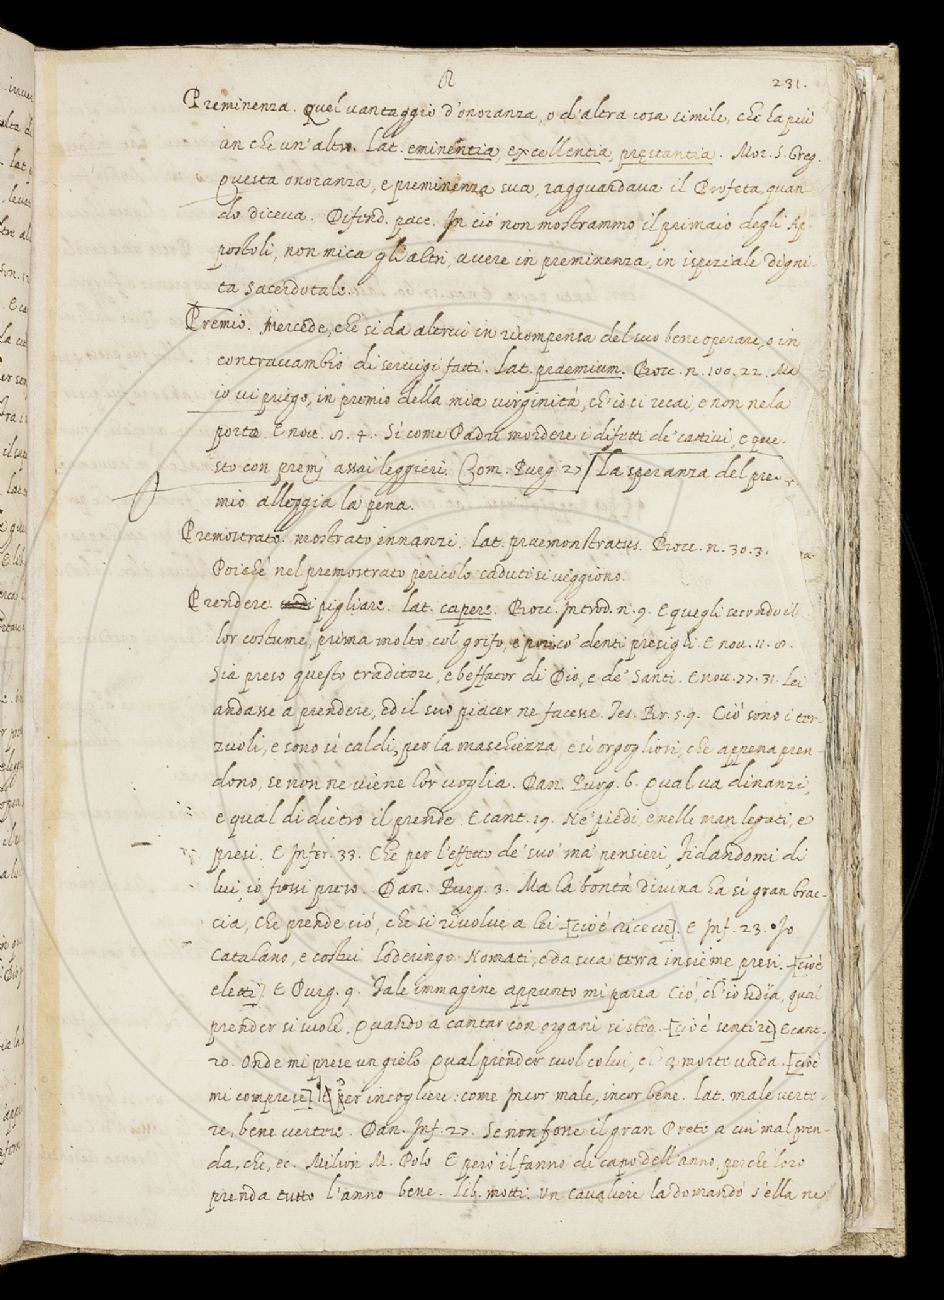 R
231.
Preminenza. Quel vantaggio d'onoranza, o d'altra cosa simile, che ha più
un che un'altro. Lat. eminentia, excellentia, prestantia. Mor. S. Greg.
Questa onoranza, e preminenza sua, ragguardava il Profeta, quan
do diceva. Difend. pace. In ciò non mostrammo il primaio degli Ap
postoli, non mica gli altri avere in preminenza, in ispeziale digni
ta Sacerdotale.
Premio. Mercede, che si da altrui in ricompensa del suo bene operare, o in
contraccambio di servigi fatti. Lat. praemium. Bocc. n. 100. 22. Ma
io vi priego, in premio della mia verginità, ch'io ci recai, e non ne la
porto. E nov. 8. 4. Si come Padri mordere i difetti de' cattivi, e que-
sto con premj assai leggieri. Com. Purg. 27 La speranza del pre-
mio alleggia la pena.
Premostrato. mostrato innanzi. Lat. praemonstratus. Bocc. n. 30. 3.
Poichè nel premostrato pericolo caduti si veggiono.
Prendere. pigliare. Lat. capere. Bocc. Introd. n. 9. E quegli secondo il
lor costume, prima molto col grifo, e poi co' denti presigli. E nov. 11. 8.
Sia preso questo traditore, e beffator di Dio, e de' Santi. E nov. 77. 31. Lei
andasse a prendere, ed il suo piacer ne facesse. Tes. Br. 5. 9. Ciò sono i ter-
zuoli, e sono sì caldi, per la maschiezza, e sì orgogliosi, che appena pren-
dono, se non ne viene lor voglia. Dan. Purg. 6. Qual va dinanzi,
e qual di dietro il prende. E cant. 19. Ne' piedi, e nelle man legati, e
presi. E Infer. 33. Che per l'effetto de' suo' ma' pensieri, Fidandomi di
lui, io fossi preso. Dan. Purg. 3. Ma la bontà divina ha sì gran brac-
cia, Che prende ciò, che si rivolve a lei [cioè riceve]. E Inf. 23. Io
Catalano, e costui Loderingo Nomati, e da tua terra insieme presi. [cioè
eletti] E Purg. 9. Tale immagine appunto mi parea Ciò, ch'io udia, qual
prender si suole, Quando a cantar con organi si stea. [cioè sentire] E cant.
20. Onde mi prese un gielo Qual prender suol colui, ch'a morte vada. [cioè
mi comprese] E per incogliere: come Incor male, incor bene. Lat. male verte-
re, bene vertere. Dan. Inf. 27. Se non fosse il gran Preto a cui mal pren-
da, che, ec. Milion M. Polo E però il fanno di capo dell'anno, perchè loro
prenda tutto l'anno bene. Lib. motti. Un cavaliere la domandò s'ella ne